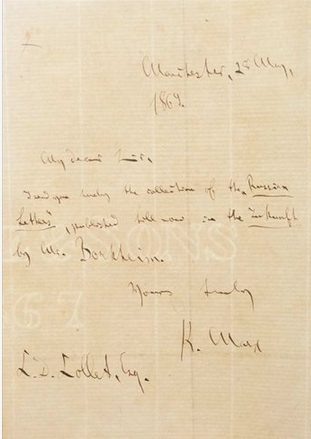 Manchester, 28 May,
1869.
My dear Sir,
I send you hereby the collection of the Russian
Letters, published till now in the Zukunft
by Mr. Borkheim.
Yours truly
K. Marx
C. D. Collet, Esq.
SONS
67